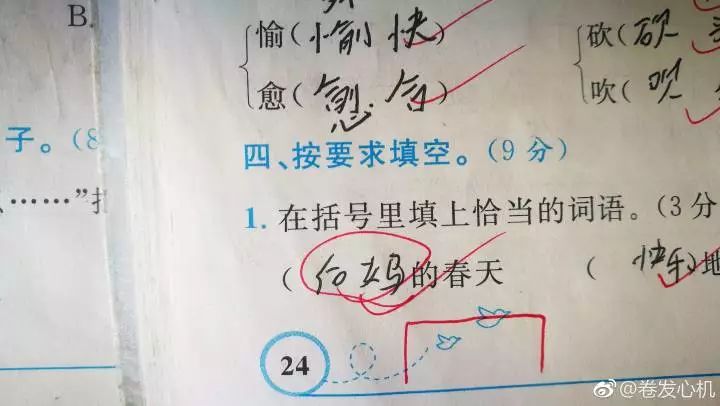 B.
愉（愉快） 砍（砍
愈（愈合） 吹（吹
子。（8
四、按要求填空。（9分）
……”
1. 在括号里填上恰当的词语。（3分
（ 妈的春天 （快乐）地
24
@卷发心机